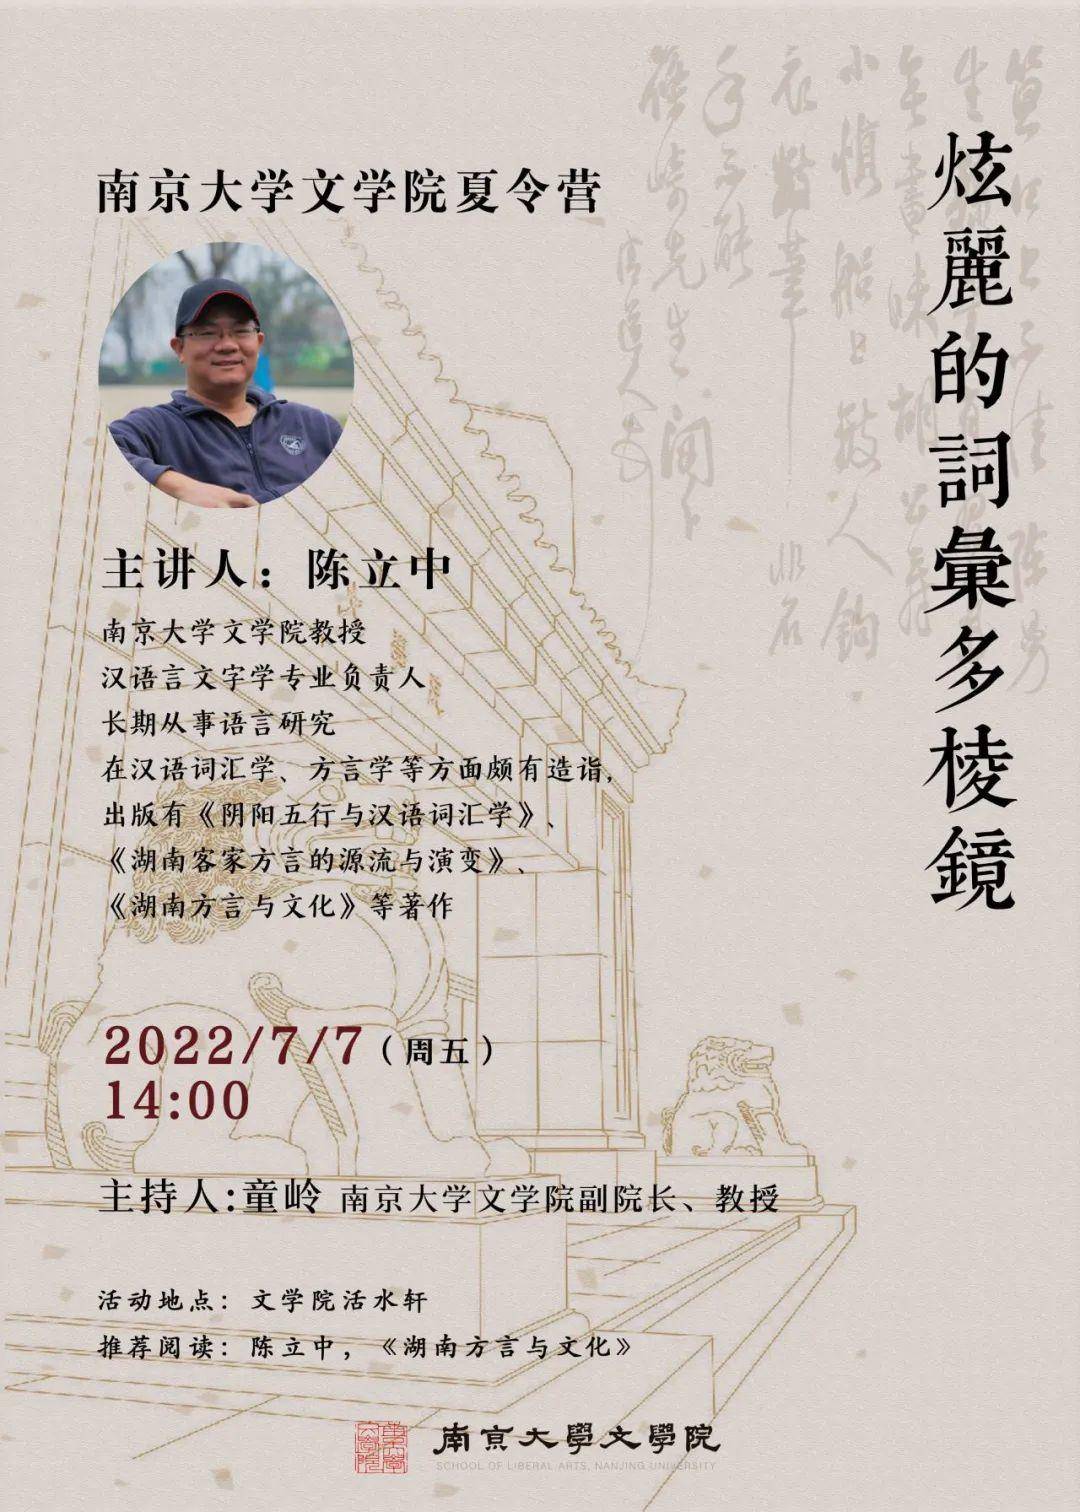 炫麗的詞彙多棱鏡
南京大学文学院夏令营
主讲人：陈立中
南京大学文学院教授
汉语言文字学专业负责人
长期从事语言研究
在汉语词汇学、方言学等方面颇有造诣，
出版有《阴阳五行与汉语词汇学》、
《湖南客家方言的源流与演变》、
《湖南方言与文化》等著作
2022/7/7（周五）
14:00
主持人:童岭 南京大学文学院副院长、教授
活动地点：文学院活水轩
推荐阅读：陈立中，《湖南方言与文化》
南京大學文學院
SCHOOL OF LIBERAL ARTS, NANJING UNIVERSITY